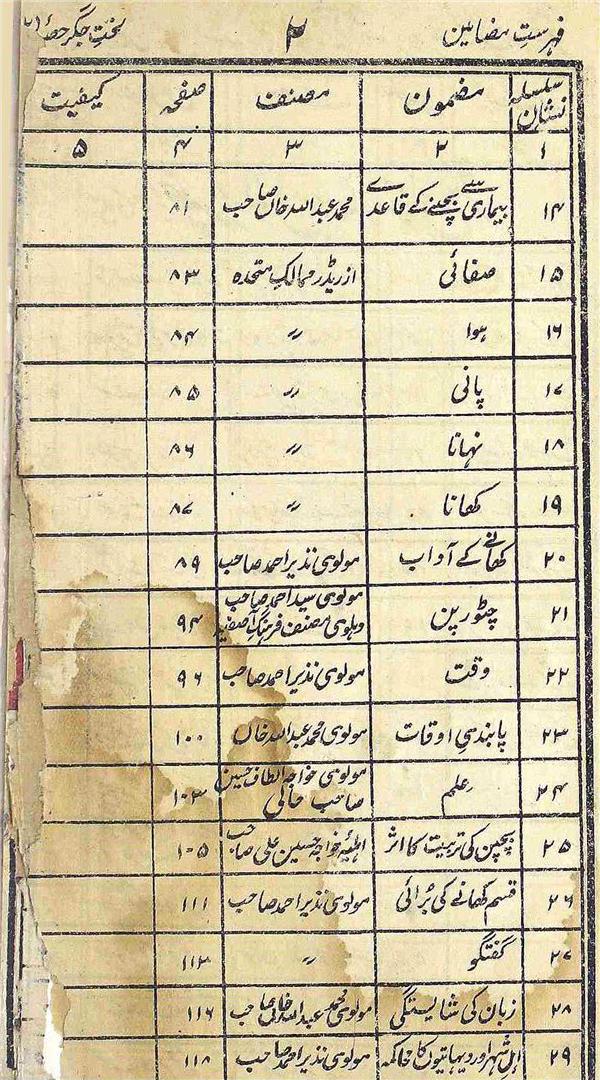 فہرست مضامین ۲ لخت جگر حصہ
سلسلہ نشان مضمون مصنف صفحہ کیفیت
۱ ۲ ۳ ۴ ۵
۱۴ بیماری سے بچنے کے قاعدے محمد عبداللہ خاں صاحب ۸۱
۱۵ صفائی از ریڈر ممالک متحدہ ۸۳
۱۶ ہوا 〃 ۸۴
۱۷ پانی 〃 ۸۵
۱۸ نہانا 〃 ۸۶
۱۹ کھانا 〃 ۸۷
۲۰ کھانے کے آداب مولوی نذیر احمد صاحب ۸۹
۲۱ چٹورپن مولوی سید احمد صاحب دہلوی مصنف فرہنگ آصفیہ ۹۴
۲۲ وقت مولوی نذیر احمد صاحب ۹۶
۲۳ پابندیِ اوقات مولوی محمد عبداللہ خاں ۱۰۰
۲۴ علم مولوی خواجہ الطاف حسین صاحب حالی ۱۰۳
۲۵ بچپن کی تربیت کا اثر اہلیۂ خواجہ حسین علی صاحب ۱۰۵
۲۶ قسم کھانے کی بُرائی مولوی نذیر احمد صاحب ۱۱۱
۲۷ گفتگو 〃 ۱۱۳
۲۸ زبان کی شایستگی مولوی محمد عبداللہ خاں صاحب ۱۱۶
۲۹ اہل شہر اور دیہاتیوں کا خاکہ مولوی نذیر احمد صاحب ۱۱۸